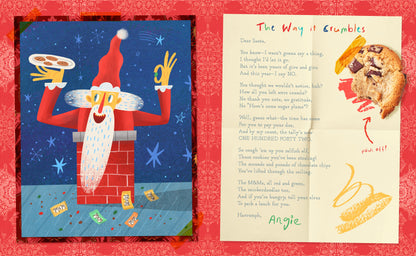 The Way it Crumbles
Dear Santa,
You know—I wasn't gonna say a thing,
I thought I'd let it go.
But it's been years of give and give
And this year—I say NO.
You thought we wouldn't notice, huh?
How all you left were crumbs?
No thank you note, no gratitude,
No "How's some sugar plums?"
Well, guess what—the time has come
For you to pay your due,
And by my count, the tally's now
ONE HUNDRED FORTY TWO.
So cough 'em up you selfish elf,
Those cookies you've been stealing!
The mounds and pounds of chocolate chips
You've lifted through the ceiling.
The M&Ms, all red and green,
The snickerdoodles too,
And if you're hungry, tell your elves
To pack a lunch for you.
Harrumph,
Angie